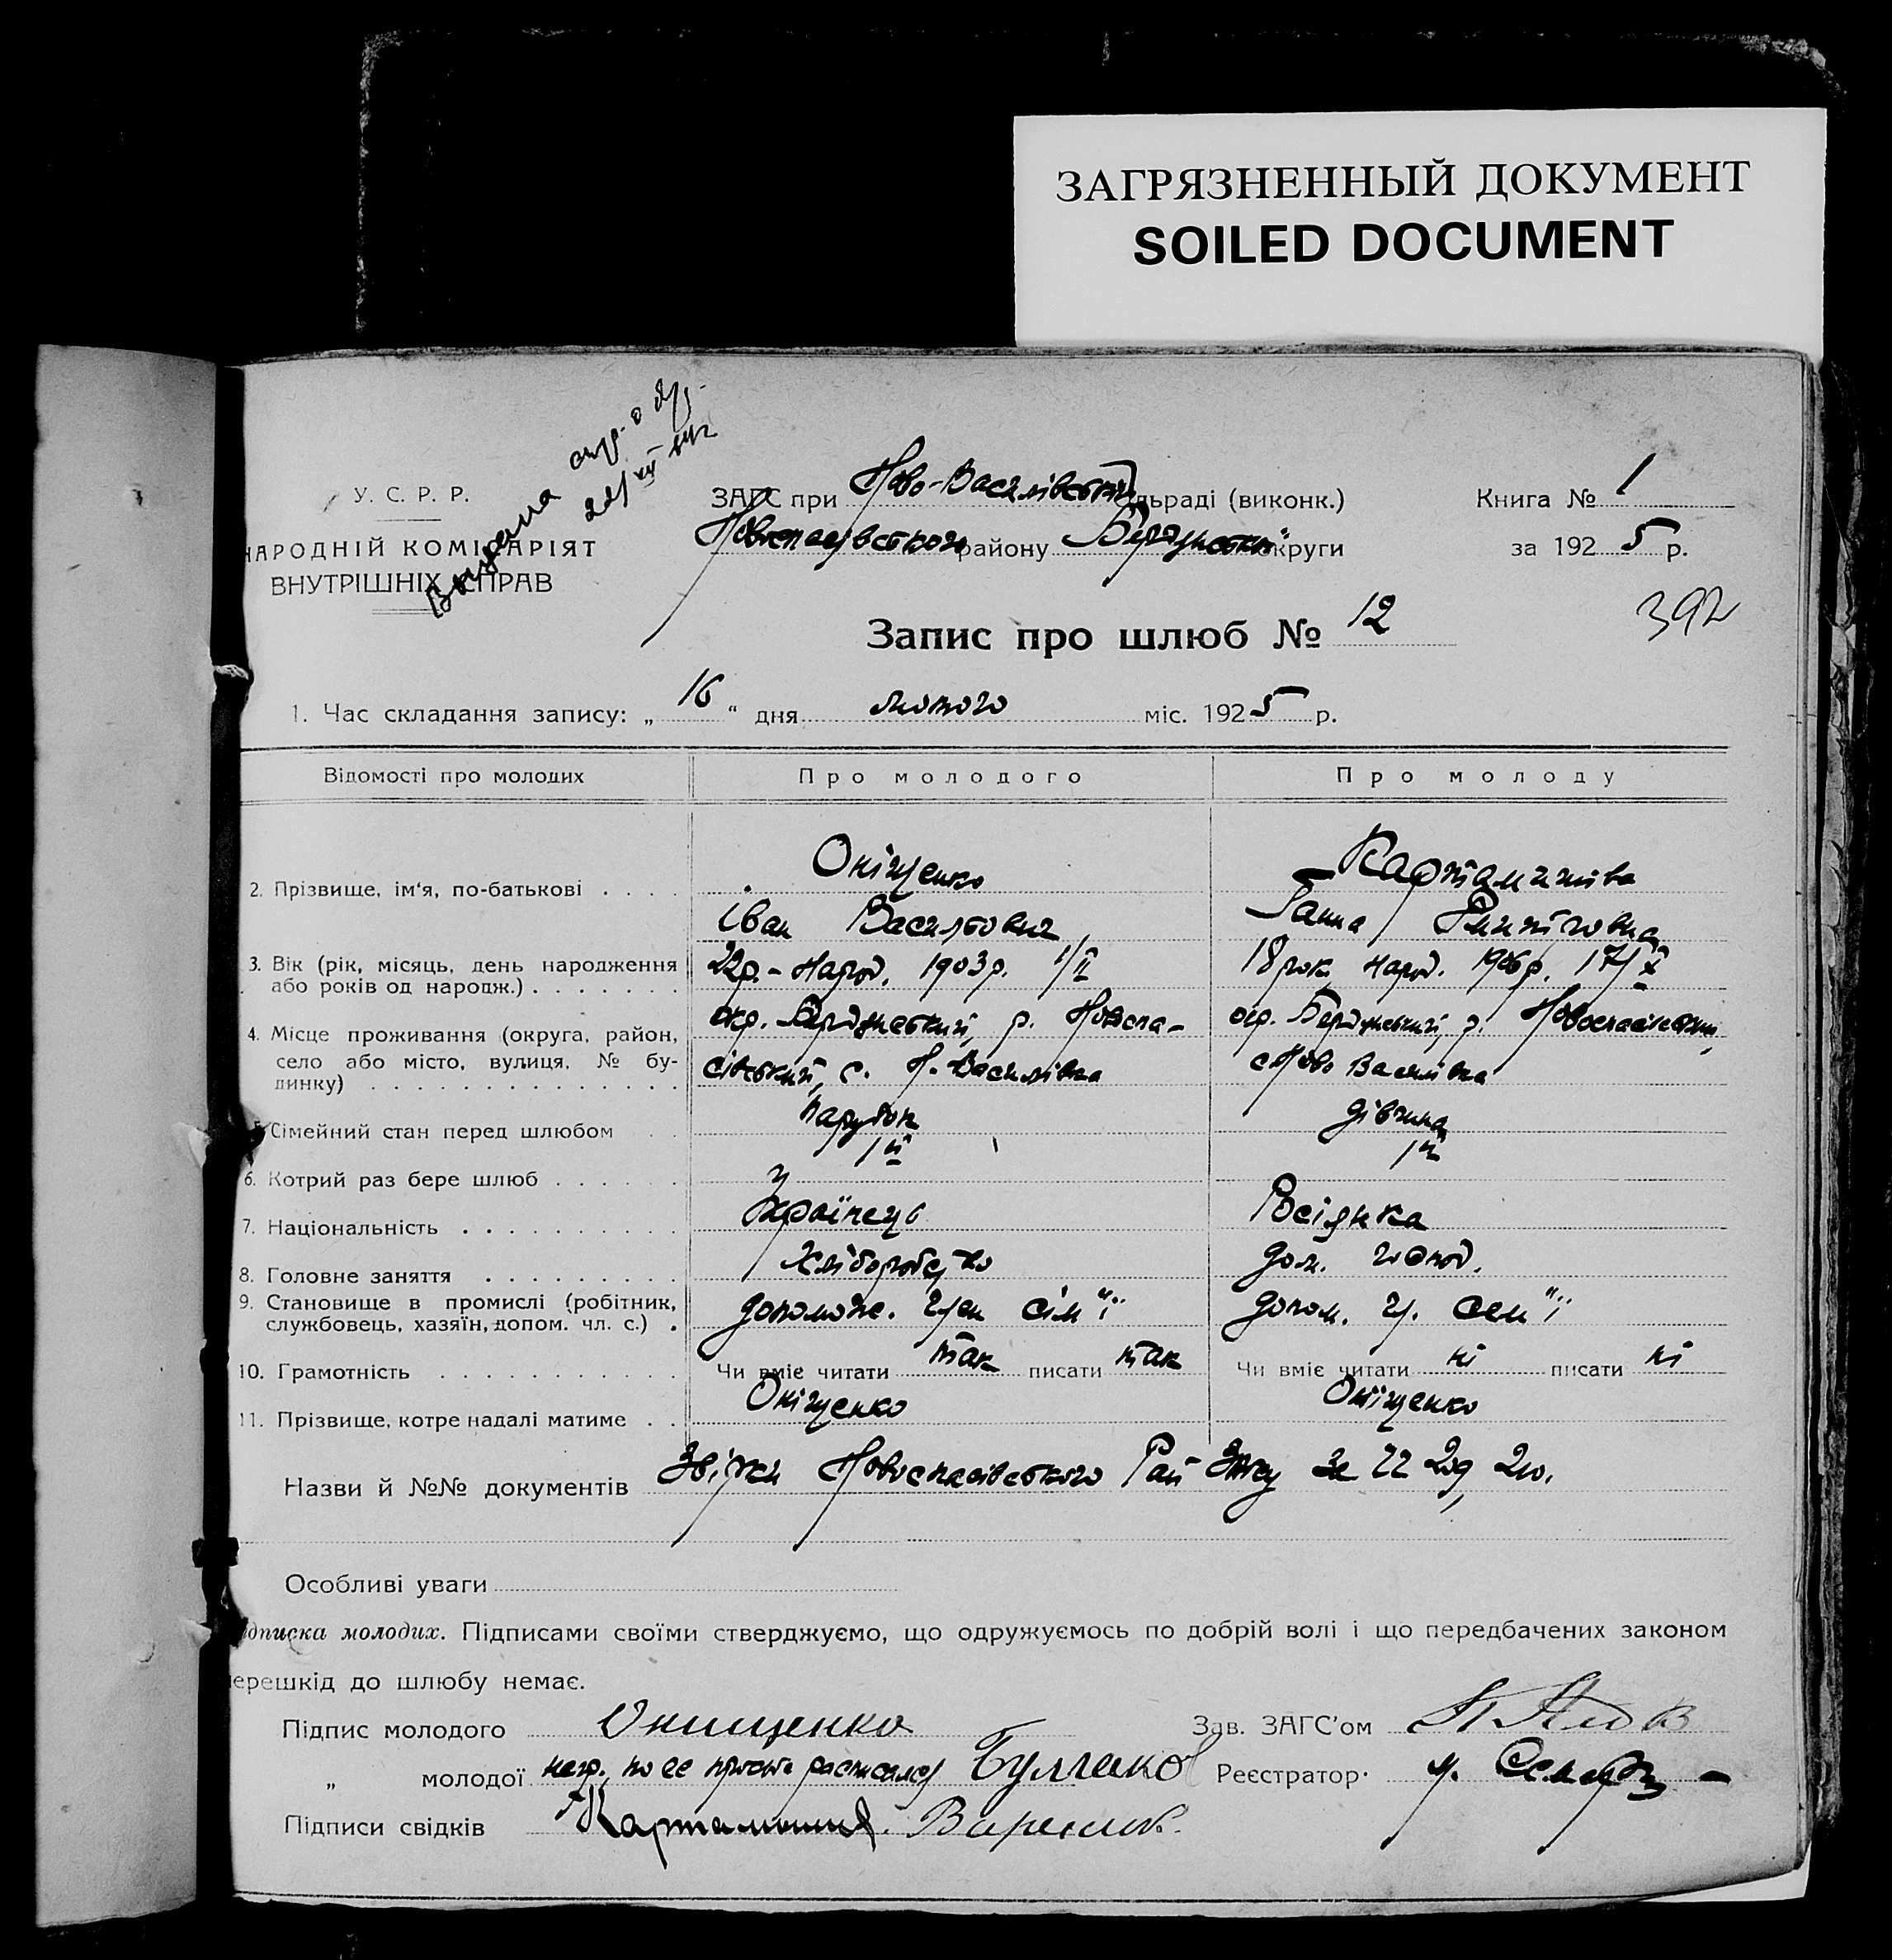 ЗАГРЯЗНЕННЫЙ ДОКУМЕНТ
SOILED DOCUMENT
Видана
У. С. Р. Р.
НАРОДНІЙ КОМІСАРІЯТ
ВНУТРІШНІХ СПРАВ
ЗАГС при Ново-Василівській сільраді (виконк.)
Новоспасівського району Бердянської округи
Книга № 1
за 1925 р.
392
Запис про шлюб № 12
1. Час складання запису: „16“ дня лютого міс. 1925 р.
Відомості про молодих Про молодого Про молоду
2. Прізвище, ім'я, по-батькові . . . . Оніщенко
Іван Васильович
Ганна
3. Вік (рік, місяць, день народження або років од народж.) . . . . . . . 22р. - народ. 1903р. 1/II 18 рок. народ. 1906р. 17/X
4. Місце проживання (округа, район, село або місто, вулиця, № будинку) . . . . . . . . . . . . . .
окр. Бердянський, р. Новоспа-
сівський, с. Н. Василівка
окр. Бердянський, р. Новоспасівський,
с Ново Василівка
5. Сімейний стан перед шлюбом . . парубок дівчина
6. Котрий раз бере шлюб . . . . . . 1й 1й
7. Національність . . . . . . . . . . Українець Росіянка
8. Головне заняття . . . . . . . . . Хліборобство дом. господ.
9. Становище в промислі (робітник, службовець, хазяїн, допом. чл. с.) . допомож. член сім"ї допом. чл. сем"ї
10. Грамотність . . . . . . . . . . . Чи вміє читати так писати так Чи вміє читати ні писати ні
11. Прізвище, котре надалі матиме . . Оніщенко Оніщенко
Назви й №№ документів Новоспасівського Рай за 22
Особливі уваги
Підписка молодих. Підписами своїми стверджуємо, що одружуємось по добрій волі і що передбачених законом
перешкід до шлюбу немає.
Підпис молодого Онищенко Зав. ЗАГС'ом
„ молодої негр. по ее прозьбе расписался Реєстратор
Підписи свідків